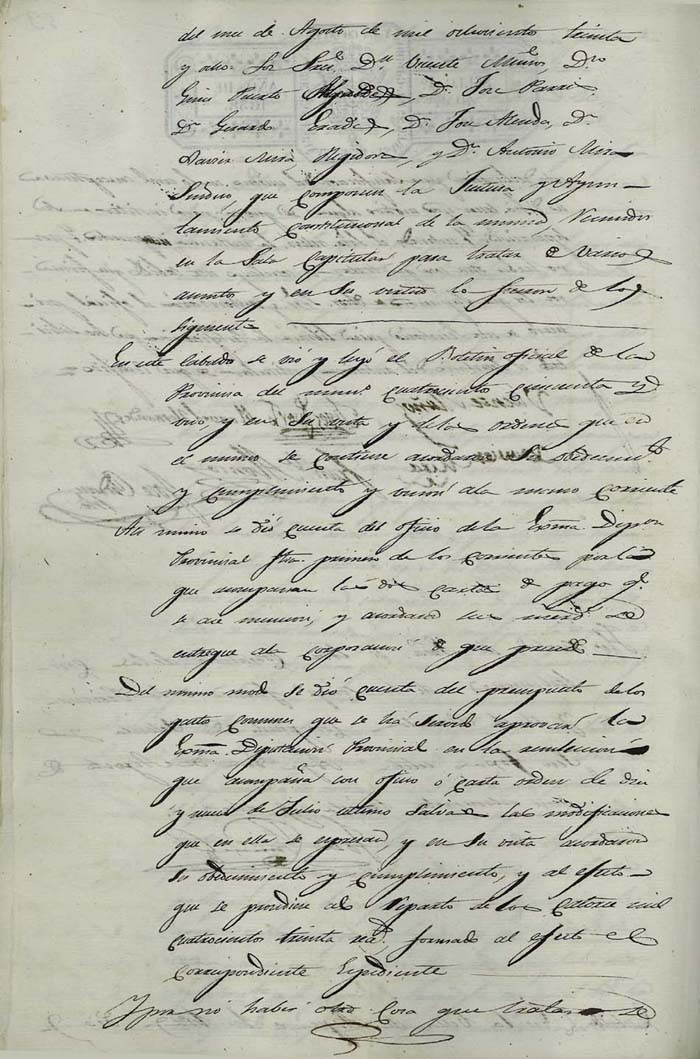 del mes de Agosto de mil ochocientos treinta
y ocho. Los Sres. Dn. Vicente Muñoz Dn.
Gines Puerto, Dn. Jose Parra
Dn. Gerardo, Dn. Jose Menda, Dn.
Mira Regidores, y Dn. Antonio Mira
Sindico, que componen la Justicia y Ayun-
tamiento Constitucional de la misma reunidos
en la Sala Capitular para tratar de varios
asuntos y en su virtud lo hicieron de los
siguientes
En este cabildo se vió y leyó el Boletin oficial de la
Provincia del num.º cuatrocientos cincuenta y
uno, y en su vista y de las ordenes que en
el mismo se contiene acordaron su obedecimto.
y cumplimiento y unirse á la mano corriente
Asi mismo se dió cuenta del oficio de la Exma. Dipon.
Provincial fha. primero de los corrientes por la
que acompañan las dos cartas de pago ql.
se menciona, y acordaron sus mercds. se
entregue á la corporacion que precede
Del mismo modo se dió cuenta del presupuesto de los
gastos comunes que se há servido aprovar la
Exma. Diputacion Provincial en la
que acompaña con oficio ó carta orden de diez
y nueve de Julio ultimo salvas las modificaciones
que en ella se expresan, y en su vista acordaron
su obedecimiento y cumplimiento, y al efecto
que se prosediese al reparto de los catorce mil
cuatrocientos treinta rs. formado al efecto el
correspondiente Espediente
Y pr. no haber otra cosa que tratar se